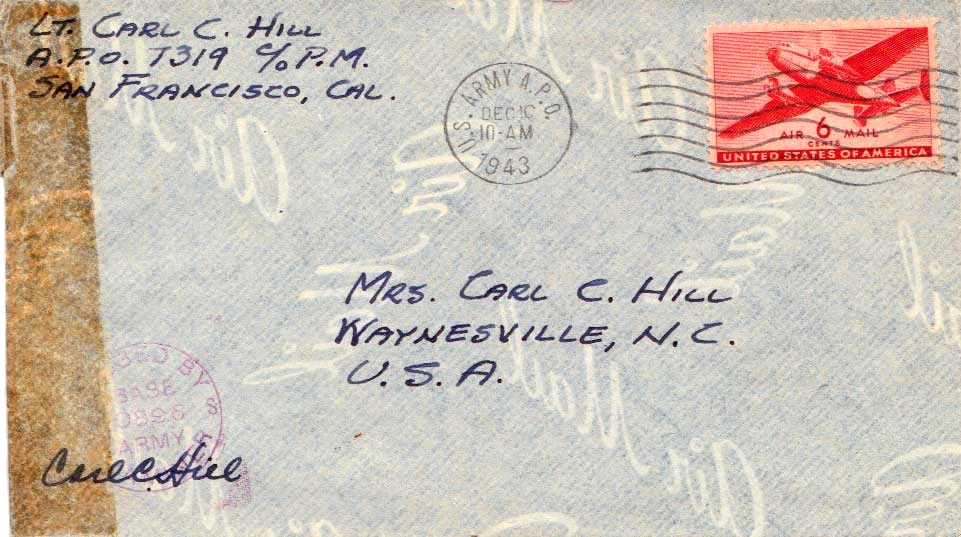 LT. CARL C. HILL
A.P.O. 7319 c/o P.M.
SAN FRANCISCO, CAL.
U.S. ARMY A.P.O.
DEC
10-AM
1943
AIR 6 MAIL
CENTS
UNITED STATES OF AMERICA
MRS. CARL C. HILL
WAYNESVILLE, N.C.
U.S.A.
BY
ARMY
Carl C. Hill
Air Mail